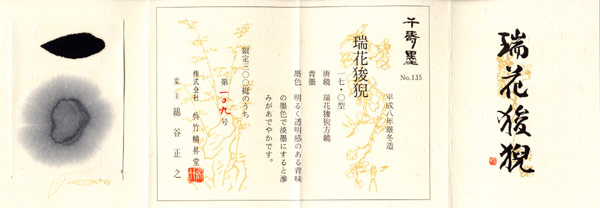 瑞花狻猊
千寿墨
No.135
平成八年厳冬造
瑞花狻猊
一七・〇型
唐鏡 瑞花狻猊方鏡
青墨
墨色 明るく透明感のある青味
の墨色で淡墨にすると滲
みがあでやかです。
限定三〇〇挺のうち
第一〇九号
株式会社 呉竹精昇堂
堂主 綿谷正之